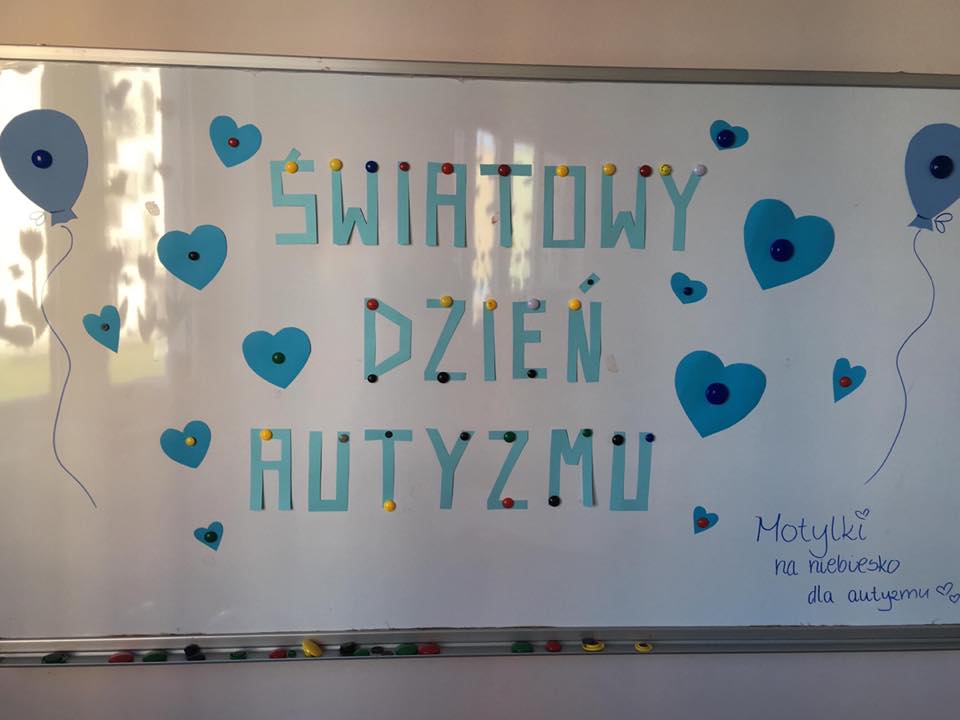 ŚWIATOWY
DZIEŃ
AUTYZMU
Motylki
na niebiesko
dla autyzmu